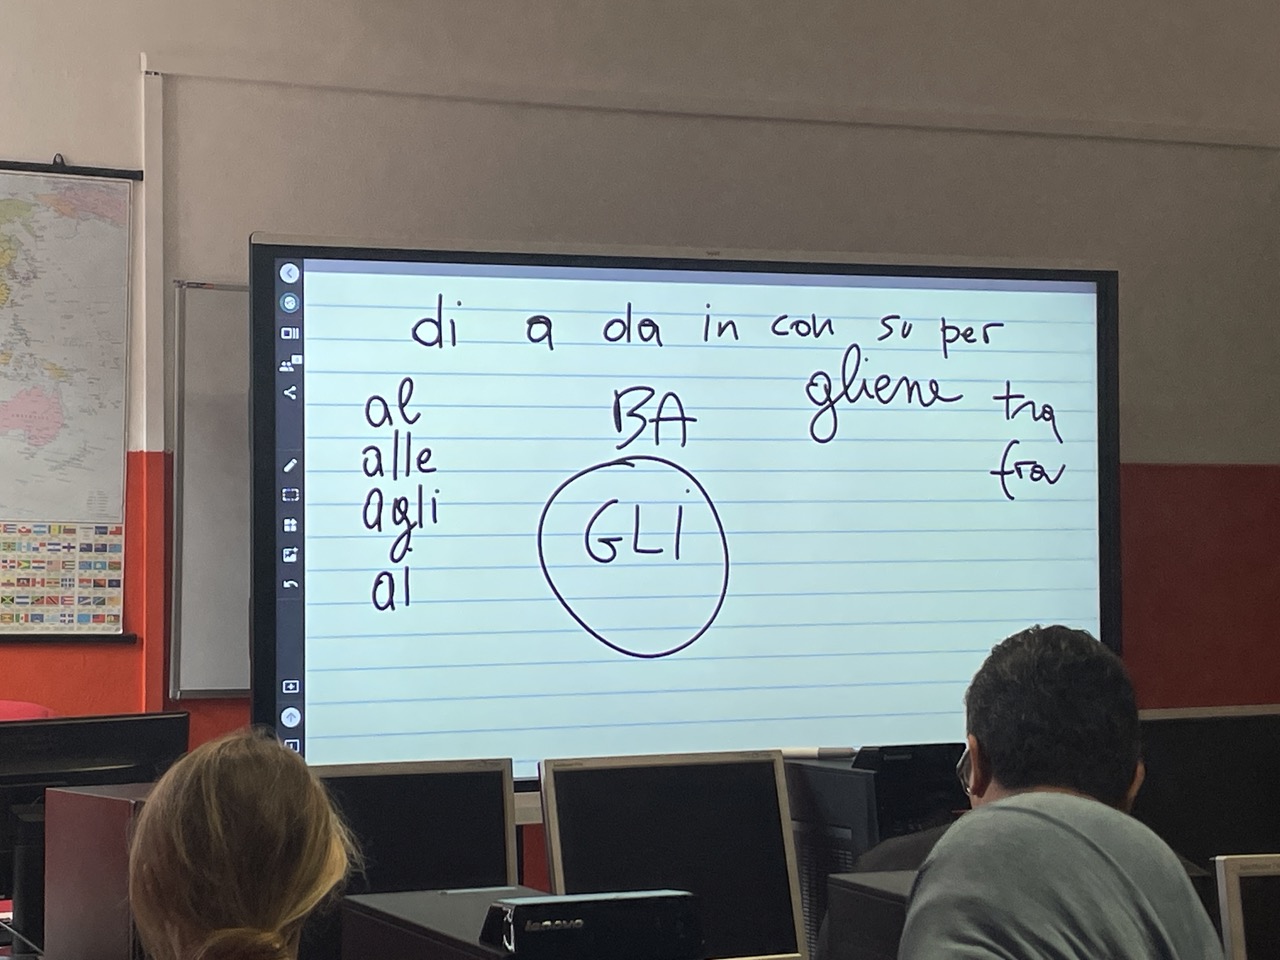 di a da in con su per
gliene
tra
fra
al
alle
agli
al
BA
GLi
lenovo